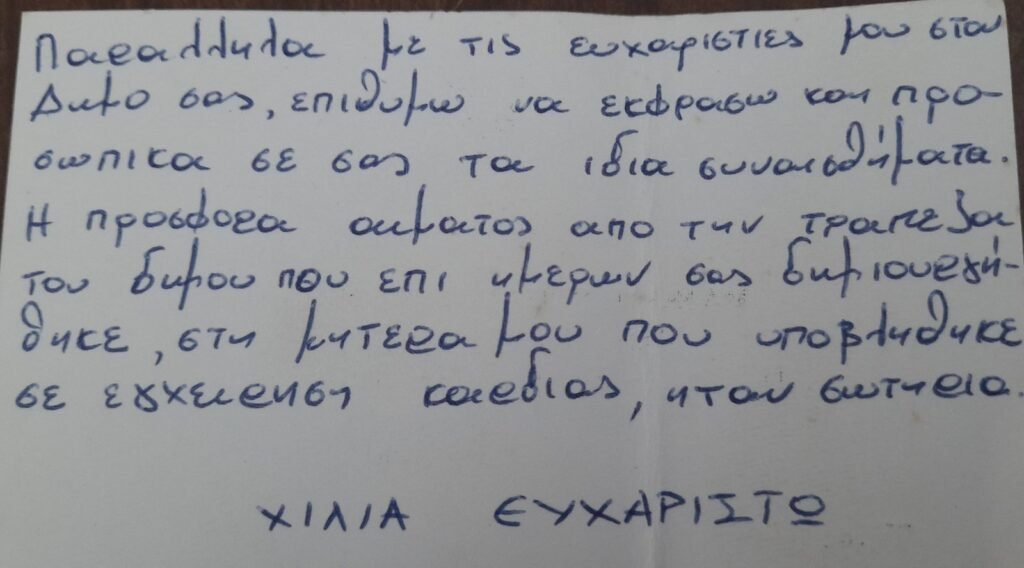 Παραλληλα με τις ευχαριστιες μου στον
Δημο σας, επιθυμω να εκφρασω και προ-
σωπικα σε σας τα ιδια συναισθήματα.
Η προσφορα αιματος απο την τραπεζα
του δημου που επι ημερων σας δημιουργή-
θηκε, στη μητερα μου που υποβληθηκε
σε εγχειρηση καρδιας, ηταν σωτηρια.
ΧΙΛΙΑ ΕΥΧΑΡΙΣΤΩ